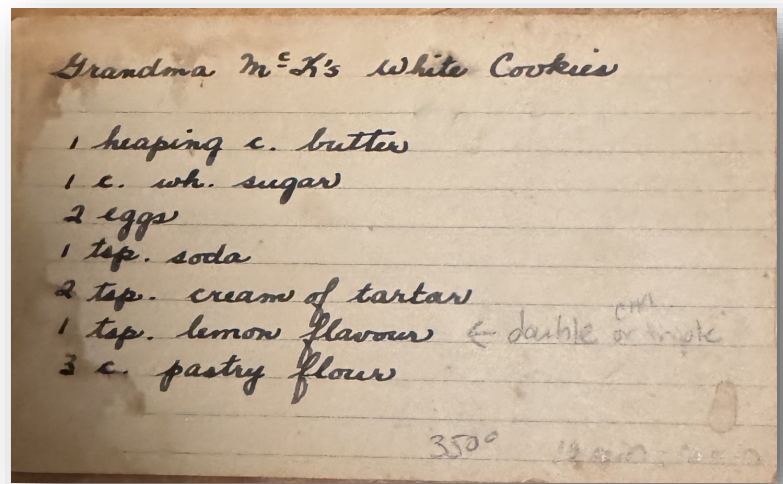 Grandma McK's White Cookies
1 heaping c. butter
1 c. wh. sugar
2 eggs
1 tsp. soda
2 tsp. cream of tartar
1 tsp. lemon flavour ← double or triple
3 c. pastry flour
350°